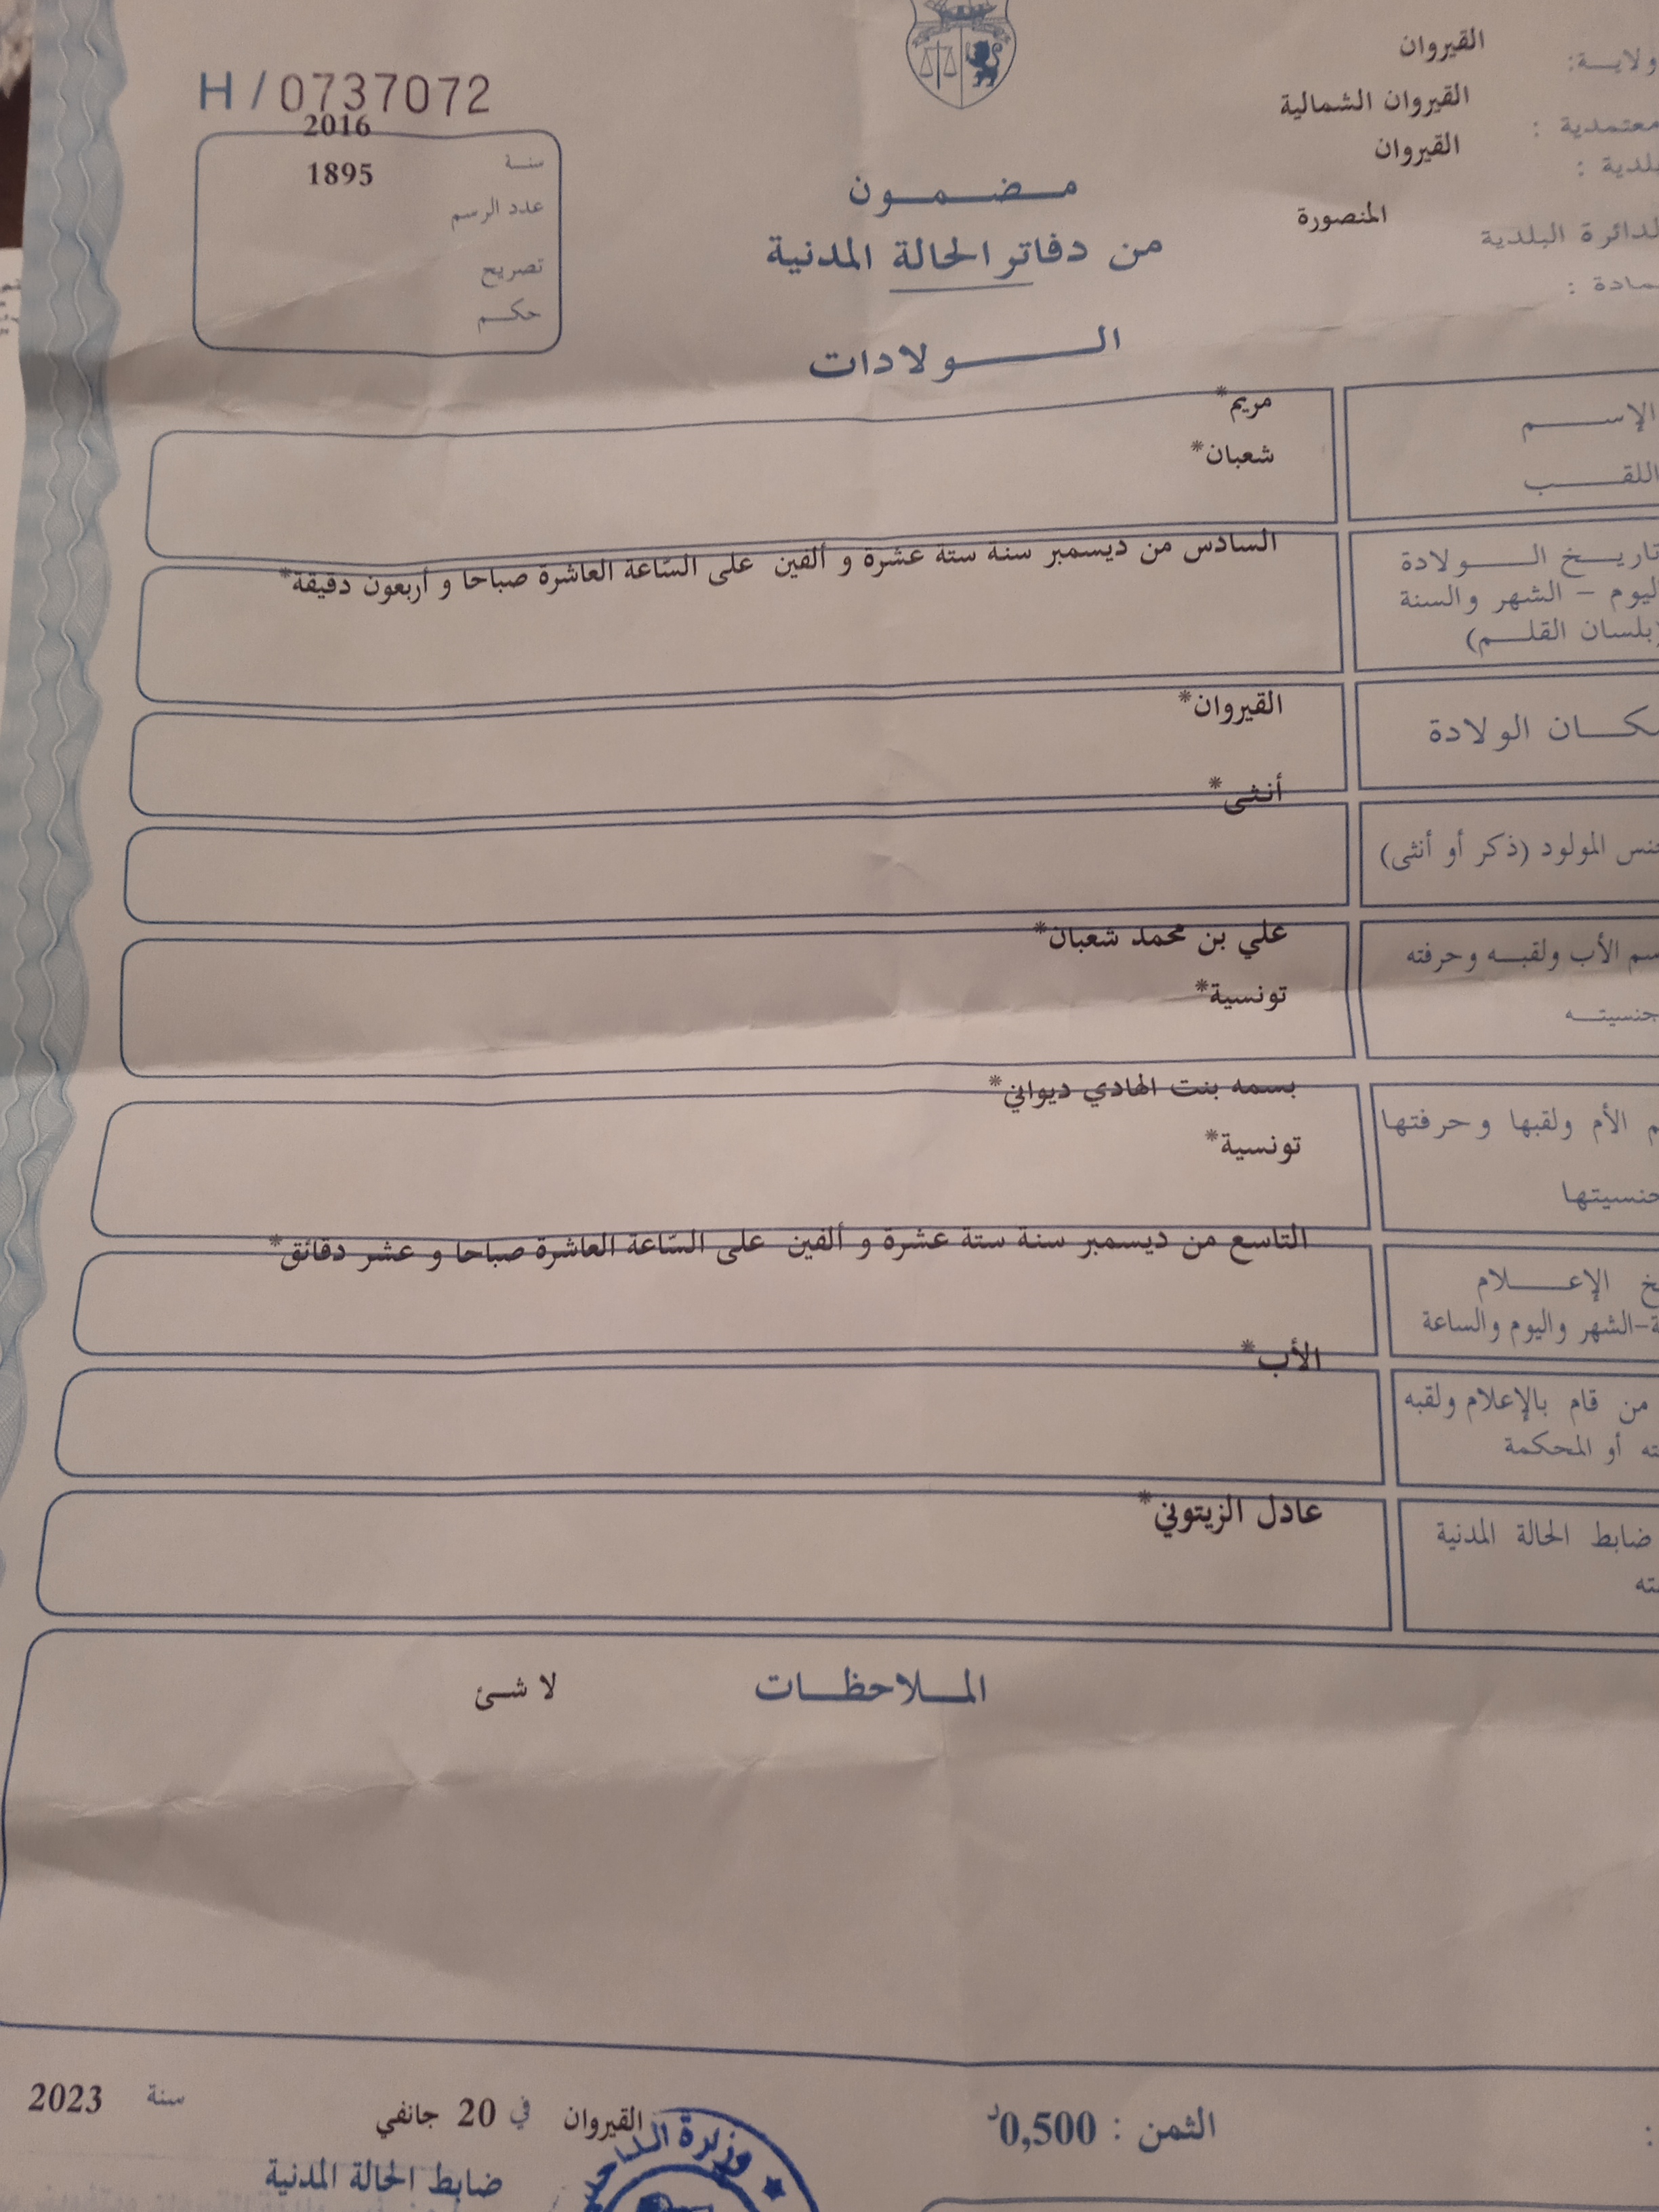 ولايـــة: القيروان
معتمدية : القيروان الشمالية
بلدية : القيروان
الدائرة البلدية المنصورة
عمادة :
H / 0737072
سنـة 2016
عدد الرسم 1895
تصريح
حكـم
مـــضـــمـــون
من دفاتر الحالة المدنية
الـــــولادات
الإســـــم مريم*
اللقـــــب شعبان*
تاريــخ الـــــولادة
اليوم – الشهر والسنة
(بلسان القلـــم)
السادس من ديسمبر سنة ستة عشرة و ألفين على السّاعة العاشرة صباحا و أربعون دقيقة*
مكـــان الولادة القيروان*
جنس المولود (ذكر أو أنثى) أنثى*
إسم الأب ولقبـــه وحرفته علي بن محمد شعبان*
جنسيتـــه تونسية*
الأم ولقبها وحرفتها بسمه بنت الهادي ديواني*
جنسيتها تونسية*
الإعـــــلام
–الشهر واليوم والساعة
التاسع من ديسمبر سنة ستة عشرة و ألفين على السّاعة العاشرة صباحا و عشر دقائق*
من قام بالإعلام ولقبه
أو المحكمة
الأب*
ضابط الحالة المدنية عادل الزيتوني*
المـــلاحظـــات لا شئ
الثمن : 0,500د
القيروان في 20 جانفي سنة 2023
ضابط الحالة المدنية
وزارة الداخلية